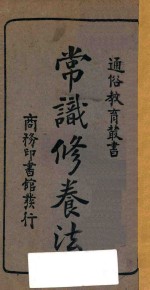 通俗教育叢書
常識修養法
商務印書館發行